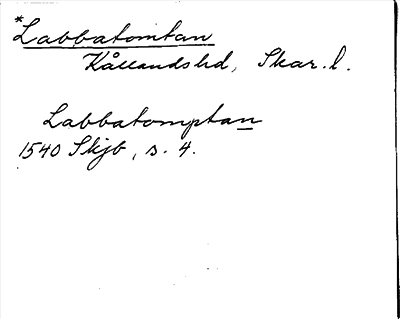 *Labbatomtan
Kållandshd, Skar. l.
Labbatomptan
1540 Skjb, s. 4.